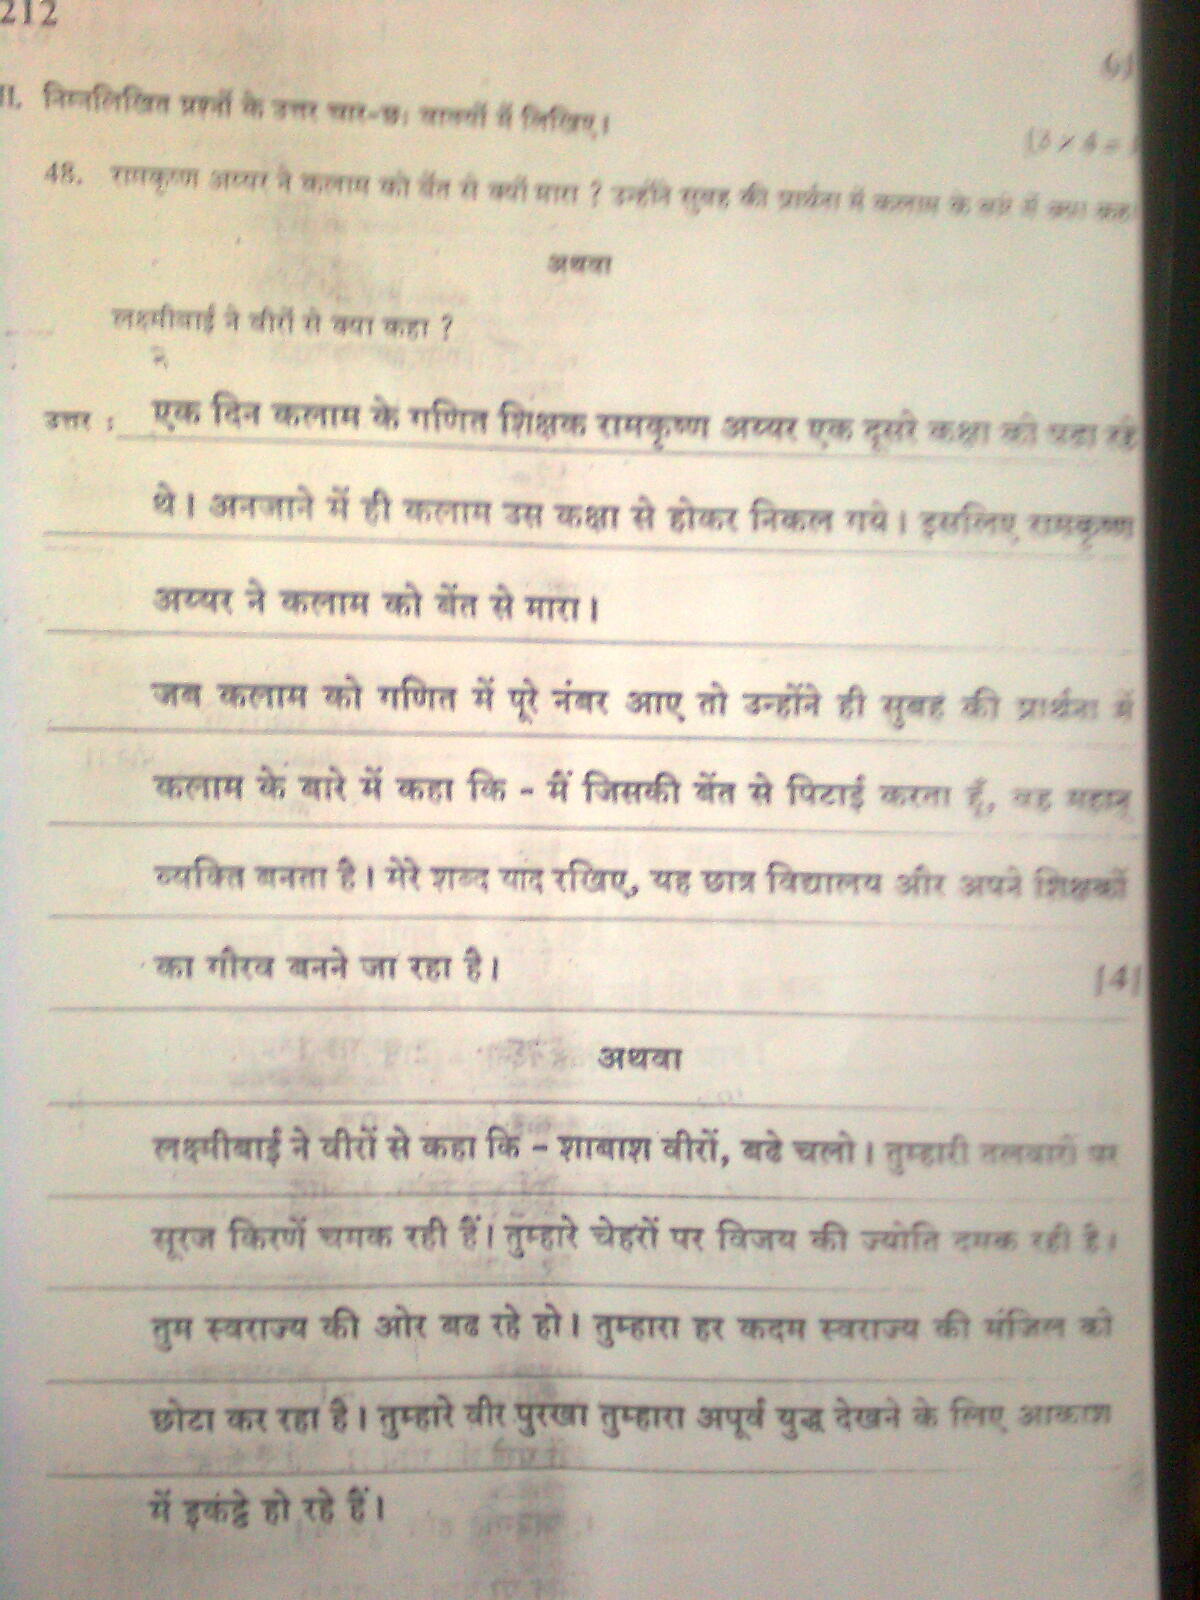 212
II. निम्नलिखित प्रश्नों के उत्तर चार-छः वाक्यों में लिखिए।
48. रामकृष्ण अय्यर ने कलाम को बेंत से क्यों मारा ? उन्होंने सुबह की प्रार्थना में कलाम के बारे में क्या कहा
अथवा
लक्ष्मीबाई ने वीरों से क्या कहा ?
उत्तर : एक दिन कलाम के गणित शिक्षक रामकृष्ण अय्यर एक दूसरे कक्षा को पढा रहे
थे। अनजाने में ही कलाम उस कक्षा से होकर निकल गये। इसलिए रामकृष्ण
अय्यर ने कलाम को बेंत से मारा।
जब कलाम को गणित में पूरे नंबर आए तो उन्होंने ही सुबह की प्रार्थना में
कलाम के बारे में कहा कि - मैं जिसकी बेंत से पिटाई करता हूँ, वह महान्
व्यक्ति बनता है। मेरे शब्द याद रखिए, यह छात्र विद्यालय और अपने शिक्षकों
का गौरव बनने जा रहा है।
[4]
अथवा
लक्ष्मीबाई ने वीरों से कहा कि - शाबाश वीरों, बढे चलो। तुम्हारी तलवारों पर
सूरज किरणें चमक रही हैं। तुम्हारे चेहरों पर विजय की ज्योति दमक रही है।
तुम स्वराज्य की ओर बढ रहे हो। तुम्हारा हर कदम स्वराज्य की मंजिल को
छोटा कर रहा है। तुम्हारे वीर पुरखा तुम्हारा अपूर्व युद्ध देखने के लिए आकाश
में इकंट्ठे हो रहे हैं।